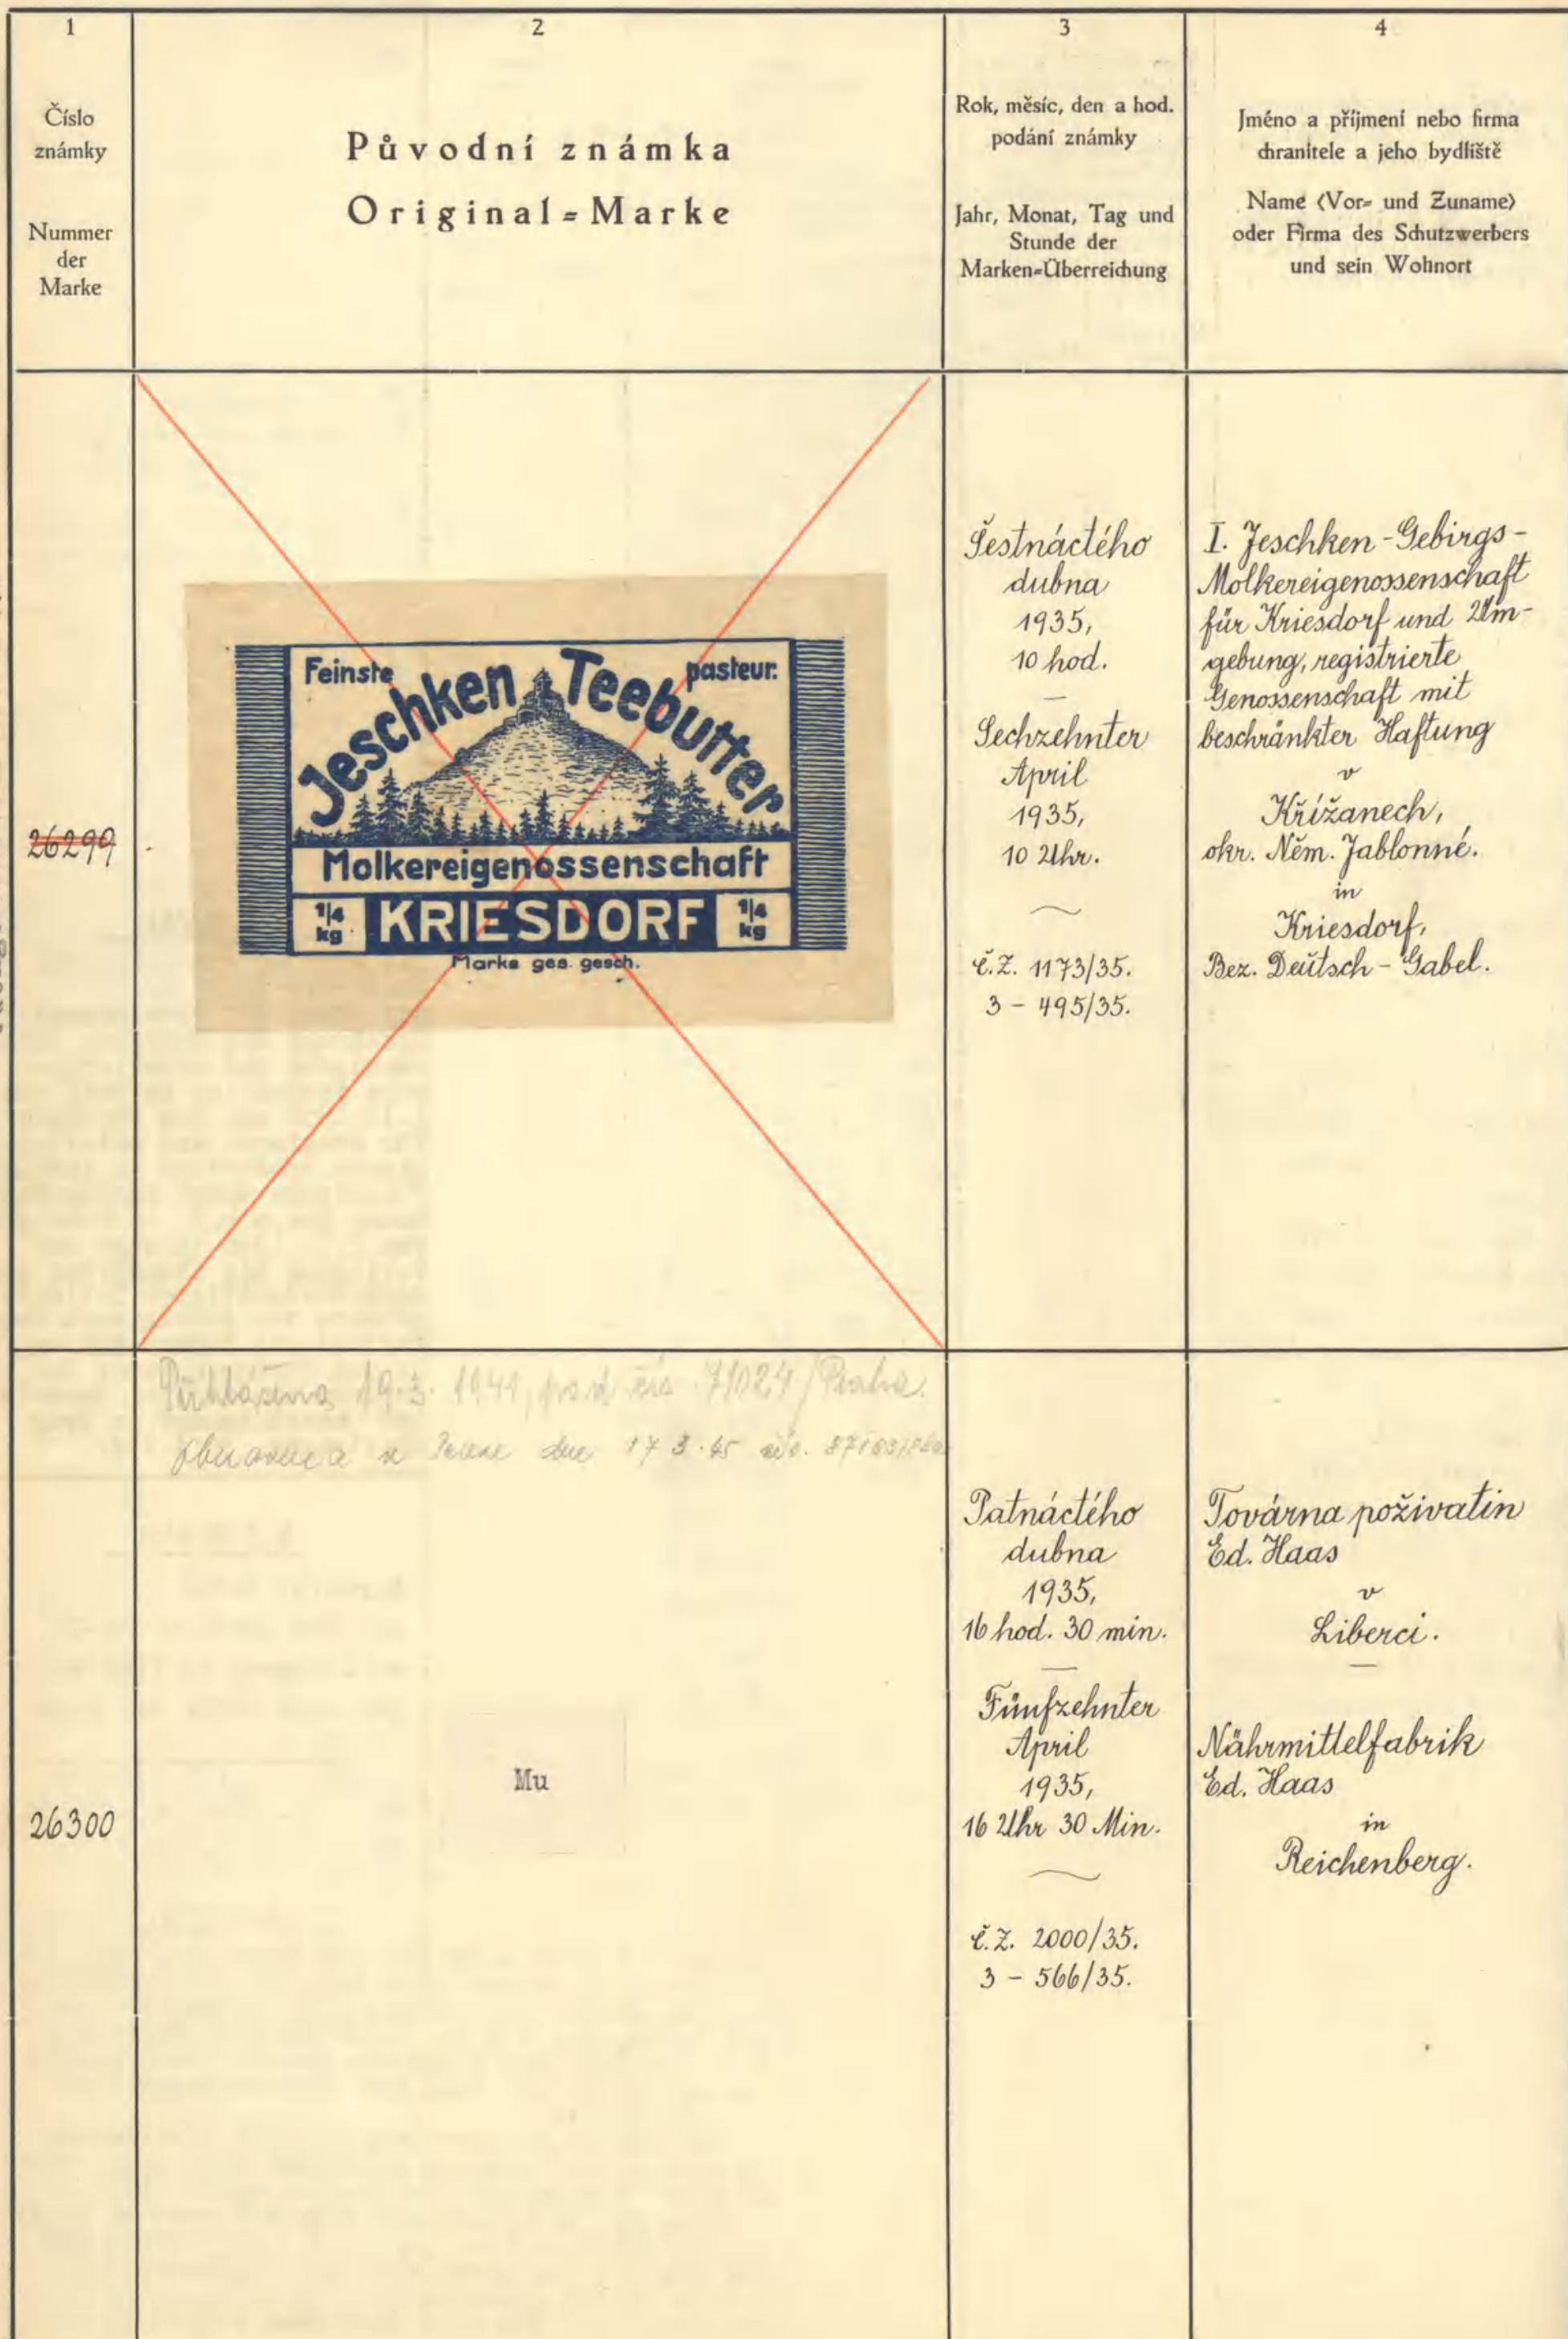 1
2
3
4
Číslo
známky
Nummer
der
Marke
Původní známka
Original=Marke
Rok, měsíc, den a hod.
podání známky
Jahr, Monat, Tag und
Stunde der
Marken=Überreichung
Jméno a příjmení nebo firma
chranitele a jeho bydliště
Name (Vor= und Zuname)
oder Firma des Schutzwerbers
und sein Wohnort
26299
Feinste
pasteur.
Jeschken Teebutter
Molkereigenossenschaft
1/4 kg KRIESDORF 1/4 kg
Marke ges. gesch.
Šestnáctého
dubna
1935,
10 hod.
—
Sechzehnter
April
1935,
10 Uhr.
č.Z. 1173/35.
3 - 495/35.
I. Jeschken-Gebirgs-
Molkereigenossenschaft
für Kriesdorf und Um-
gebung, registrierte
Genossenschaft mit
beschränkter Haftung
v
Křížanech,
okr. Něm. Jablonné.
in
Kriesdorf,
Bez. Deutsch-Gabel.
Přihlášena 19.3. 1941, pod čís 71024/Praha.
dne 17 3.45
26300
Mu
Patnáctého
dubna
1935,
16 hod. 30 min.
—
Fünfzehnter
April
1935,
16 Uhr 30 Min.
č.Z. 2000/35.
3 - 566/35.
Továrna poživatin
Ed. Haas
v
Liberci.
—
Nährmittelfabrik
Ed. Haas
in
Reichenberg.